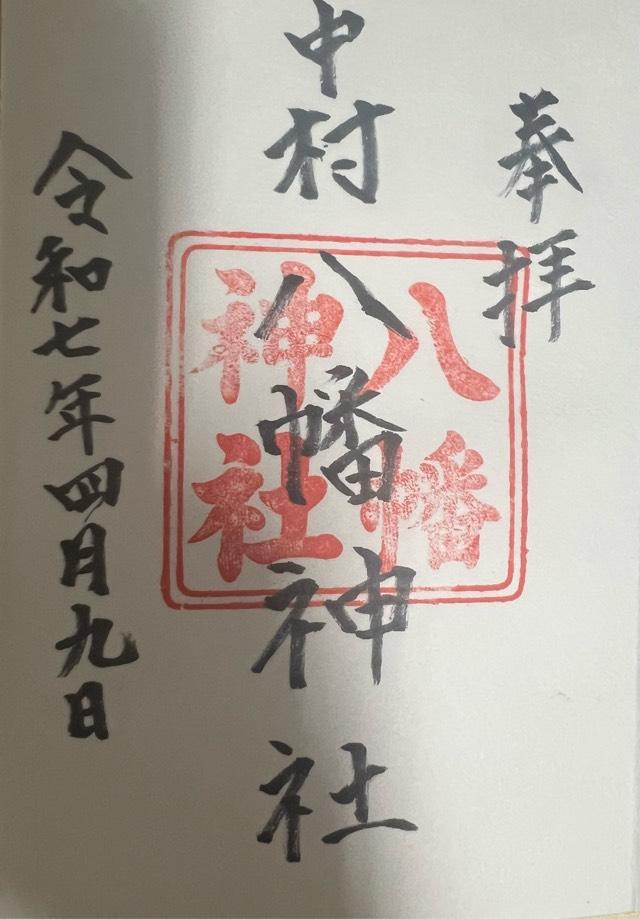 奉拝
中村八幡神社
八幡
神社
令和七年四月九日